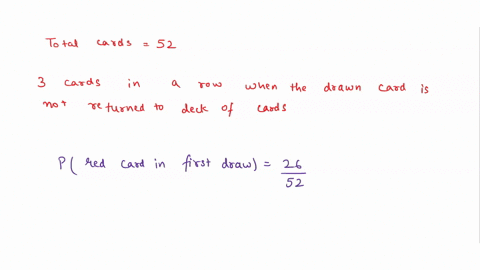 Total cards = 52
3 cards in a row when the drawn card is
not returned to deck of cards
P( red card in first draw) = 26
52